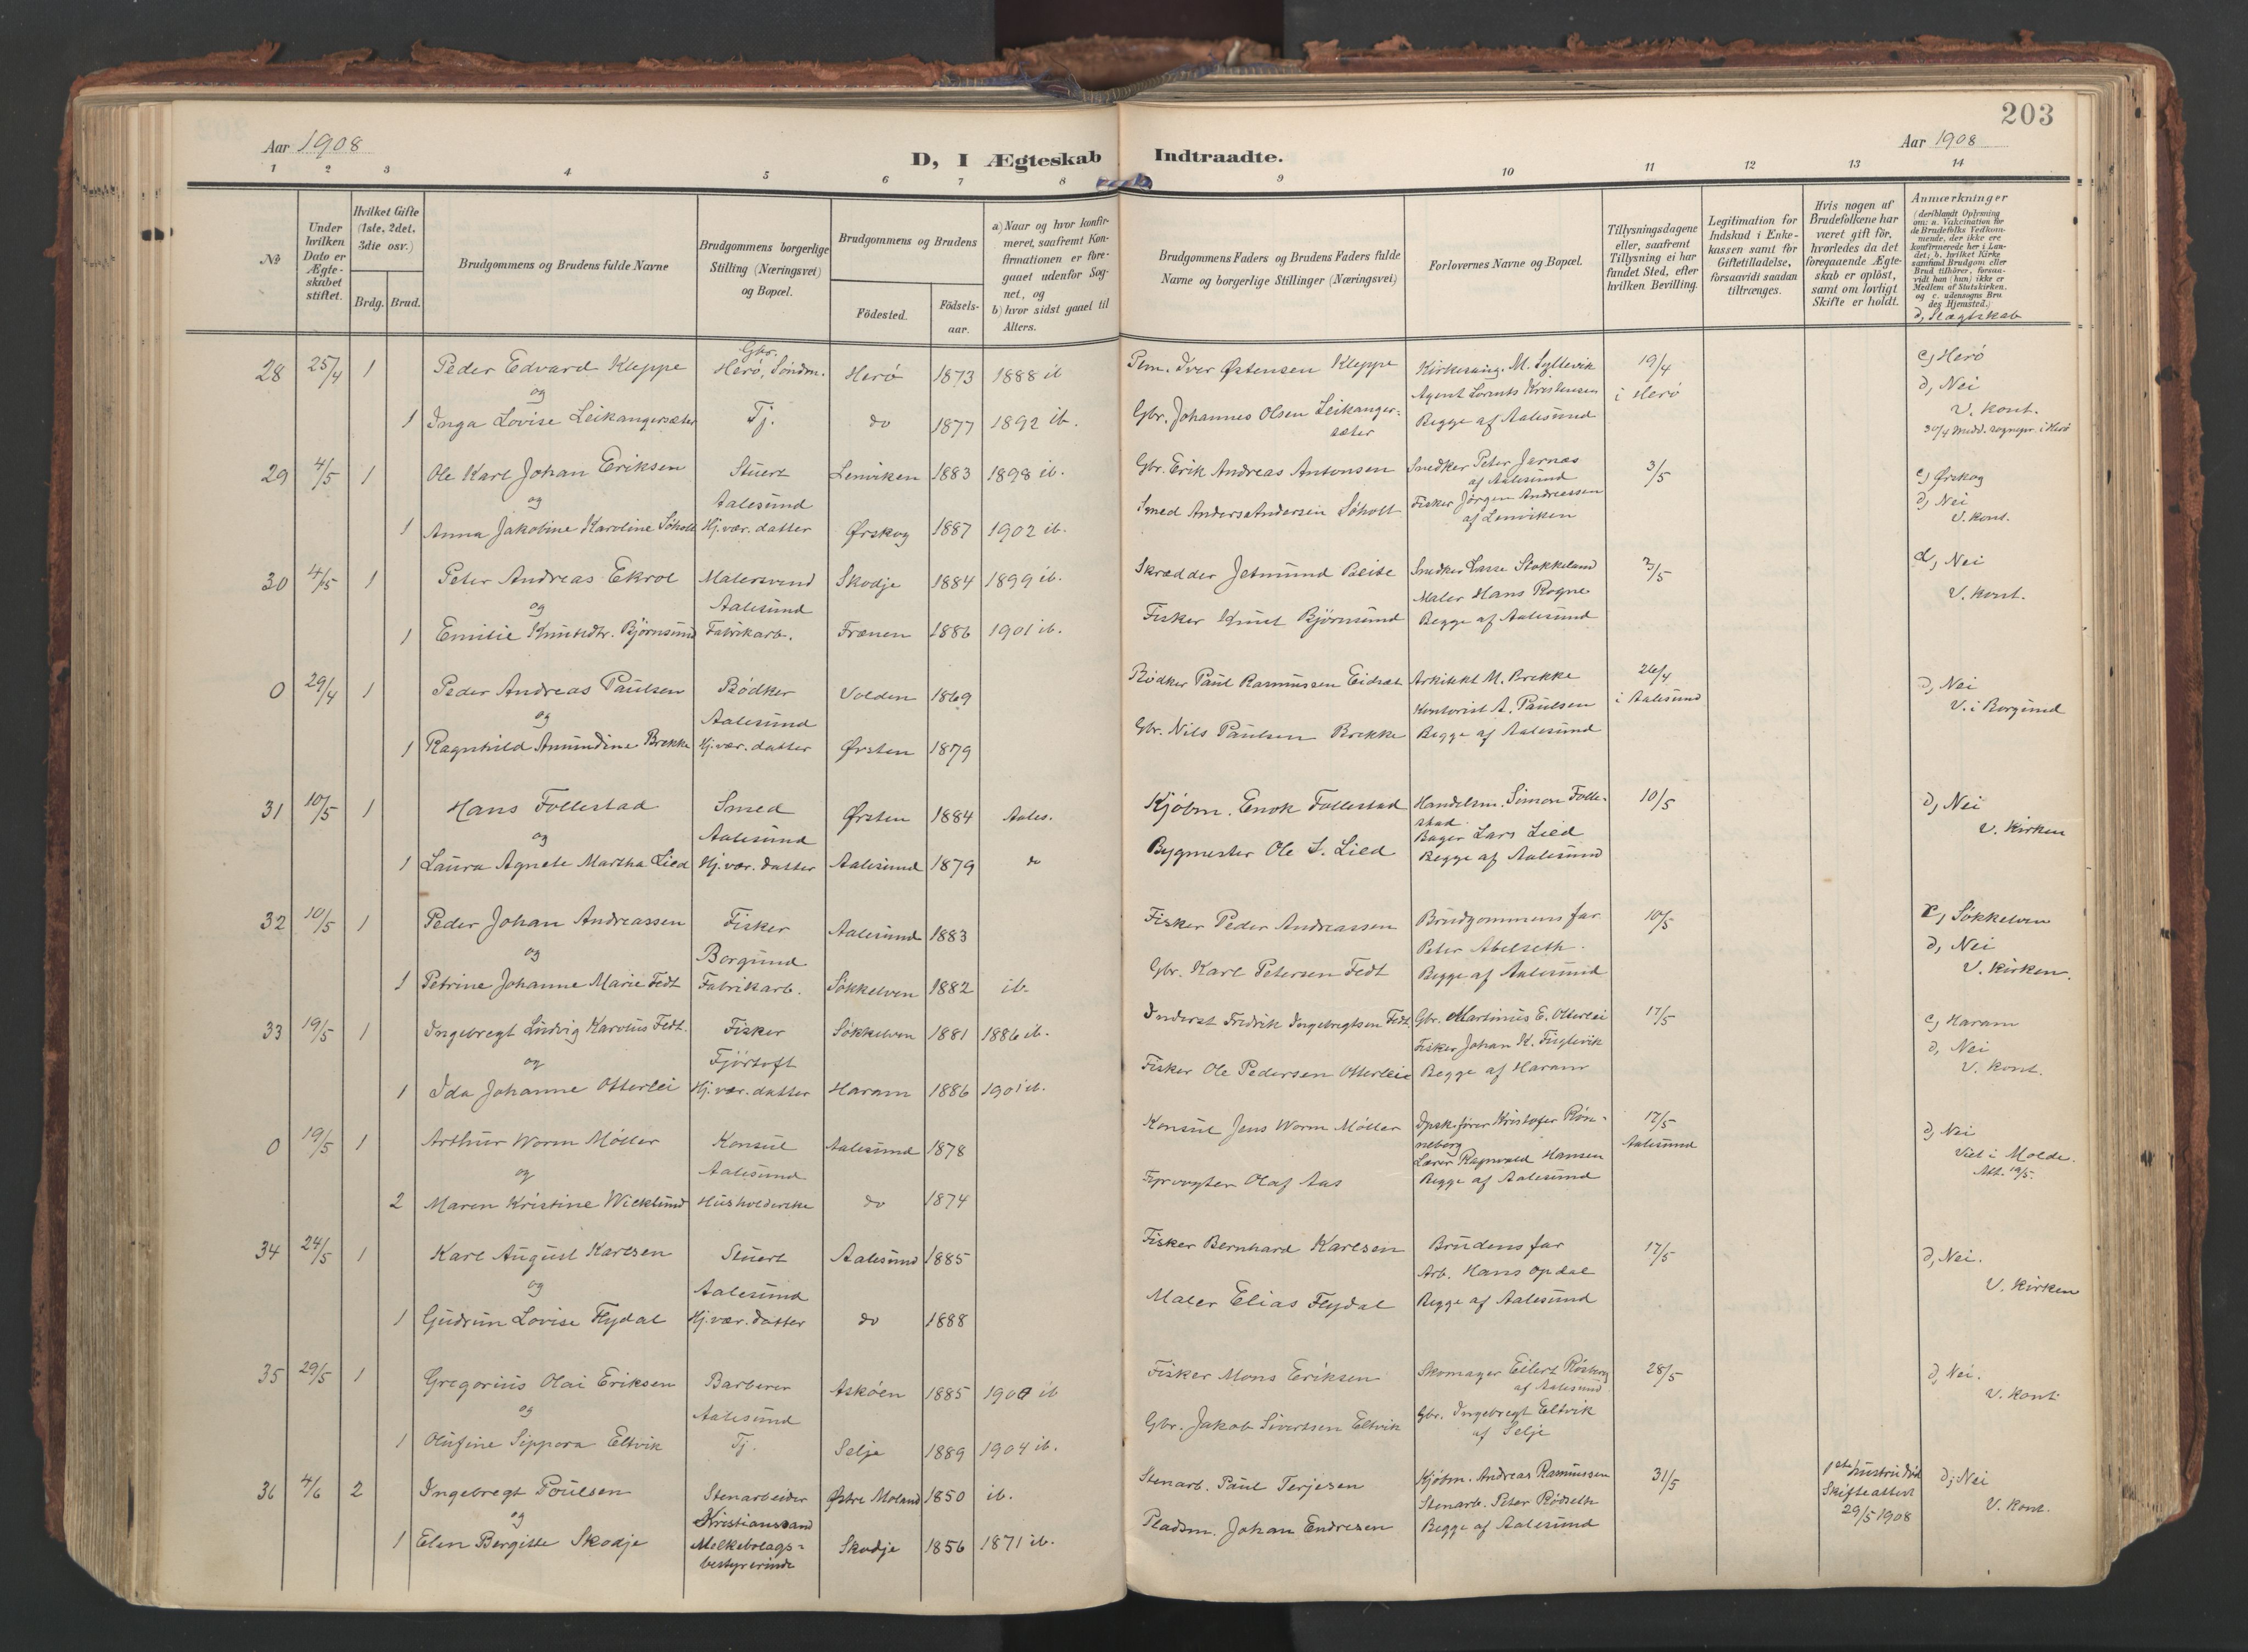 203
Aar 1908
D, I Ægteskab Indtraadte.
Aar 1908
1 2 3 4 5 6 7 8 9 10 11 12 13 14
№
Under hvilken Dato er Ægteskabet stiftet.
Hvilket Gifte (1ste, 2det, 3die osv.)
Brdg. Brud.
Brudgommens og Brudens fulde Navne
Brudgommens borgerlige Stilling (Næringsvei) og Bopæl.
Brudgommens og Brudens
Födested.
Födsels-aar.
a) Naar og hvor konfirmeret, saafremt Konfirmationen er foregaaet udenfor Sognet, og
b) hvor sidst gaaet til Alters.
Brudgommens Faders og Brudens Faders fulde Navne og borgerlige Stillinger (Næringsvei)
Forlovernes Navne og Bopæl.
Tillysningsdagene eller, saafremt Tillysning ei har fundet Sted, efter hvilken Bevilling.
Legitimation for Indskud i Enkekassen samt for Giftetilladelse, forsaavidt saadan tiltrænges.
Hvis nogen af Brudefolkene har været gift för, hvorledes da det foregaaende Ægteskab er oplöst, samt om lovligt Skifte er holdt.
Anmærkninger
(deriblandt Oplysning om: a. Vakcination for de Brudefolks Vedkommende, der ikke ere konfirmerede her i Landet; b. hvilket Kirkesamfund Brudgom eller Brud tilhörer, forsaavidt han (hun) ikke er Medlem af Statskirken, og c. udensogns Brudes Hjemsted.)
d, Slægtskab
28 25/4 1 Peder Edvard Kleppe Gbr. Herö, Söndm. Herö 1873 1888 ib Iver Østensen Kleppe Kirkesang. M. Syltevik 19/4 c, Herö
og Agent Lorents Kristensen i Herö d, Nei
1 Inga Lovise Leikangersæter Tj. do 1877 1892 ib. Gbr. Johannes Olsen Leikangersæter Begge af Aalesund V. kont.
30/4 medd. sognepr. i Herö
29 4/5 1 Ole Karl Johan Eriksen Stuert Lenviken 1883 1898 ib. Gbr. Erik Andreas Antonsen Snedker Peter Jarnæs af Aalesund 3/5 c, Ørskog
og Aalesund Fisker Jörgen Andreassen af Lenviken d, Nei
1 Anna Jakobine Karoline Söholt Hj. vær. datter Ørskog 1887 1902 ib. Smed Anders Andersen Söholt V. kont.
30 4/5 1 Peter Andreas Ekrol Malersvend Skodje 1884 1899 ib. Skrædder Jetmund Beite Snedker Lasse Stokkeland 3/5 d, Nei
og Aalesund Maler Hans Rogne V. kont.
1 Emilie Knutsdtr. Björnsund Fabrikarb. Frænen 1886 1901 ib. Fisker Knut Björnsund Begge af Aalesund
0 29/4 1 Peder Andreas Paulsen Bödker Volden 1869 Bödker Paul Rasmussen Eidsæt Arkitekt M. Brekke 26/4 d, Nei
og Aalesund Kontorist A. Paulsen i Aalesund V. i Borgund
1 Ragnhild Amundine Brekke Hj. vær. datter Ørsten 1879 Gbr. Nils Paulsen Brekke Begge af Aalesund
31 10/5 1 Hans Follestad Smed Ørsten 1884 Aales. Kjöbm. Enok Follestad Handelsm. Simon Follestad 10/5 d, Nei
og Aalesund Bager Lars Lied V. Kirken
1 Laura Agnete Martha Lied Hj. vær. datter Aalesund 1879 do Bygmester Ole S. Lied Begge af Aalesund
32 10/5 1 Peder Johan Andreassen Fisker Aalesund 1883 Fisker Peder Andreassen Brudgommens far 10/5 c, Sökkelven
og Borgund Peter Abelseth. d, Nei
1 Petrine Johanne Marie Fedt Fabrikarb. Sökkelven 1882 ib. Gbr. Karl Petersen Fedt Begge af Aalesund V. Kirken.
33 19/5 1 Ingebregt Ludvig Karolus Fedt. Fisker Sökkelven 1881 1886 ib. Inderst Fredrik Ingebregtsen Fedt. Gbr. Martinus E. Otterlei 17/5 c, Haram
og Fjörtoft Fisker Johan K. Fuglevik d, Nei
1 Ida Johanne Otterlei Hj. vær. datter Haram 1886 1901 ib. Fisker Ole Pedersen Otterlei Begge af Haram V. kont.
0 19/5 1 Arthur Worm Möller Konsul Aalesund 1878 Konsul Jens Worm Möller Dpskförer Kristofer Rönneberg 17/5 d, Nei
og Aalesund Lærer Ragnvald Hansen Aalesund Viet i Molde.
2 Maren Kristine Wicklund Husholderske do 1874 Fyrvogter Olaf Aas Begge af Aalesund Att. 19/5.
34 24/5 1 Karl August Karlsen Stuert Aalesund 1885 Fisker Bernhard Karlsen Brudens far 17/5 d, Nei.
og Aalesund Arb. Hans Opdal V. Kirken
1 Gudrun Lovise Flydal Hj. vær. datter do 1888 Maler Elias Flydal Begge af Aalesund
35 29/5 1 Gregorius Olai Eriksen Barberer Asköen 1885 1900 ib Fisker Mons Eriksen Skomager Eilert af Aalesund 28/5 d, Nei.
og Aalesund Gbr. Ingebregt Eltvik af Selje V. kont
1 Olufine Sippora Eltvik Tj. Selje 1889 1904 ib. Gbr. Jakob Sivertsen Eltvik
36 4/6 2 Ingebregt Poulsen Stenarbeider Østre Moland 1850 ib. Stenarb. Paul Terjesen Kjöbm. Andreas Rasmussen 31/5 1ste hustru död d, Nei
og Kristianssand Stenarb. Peter Rödseth Skifteattest V. kont.
1 Elen Bergitte Skodje Melkebolagsbestyrerinde Skodje 1856 1871 ib. Pladsm. Johan Endresen Begge af Aalesund 29/5 1908